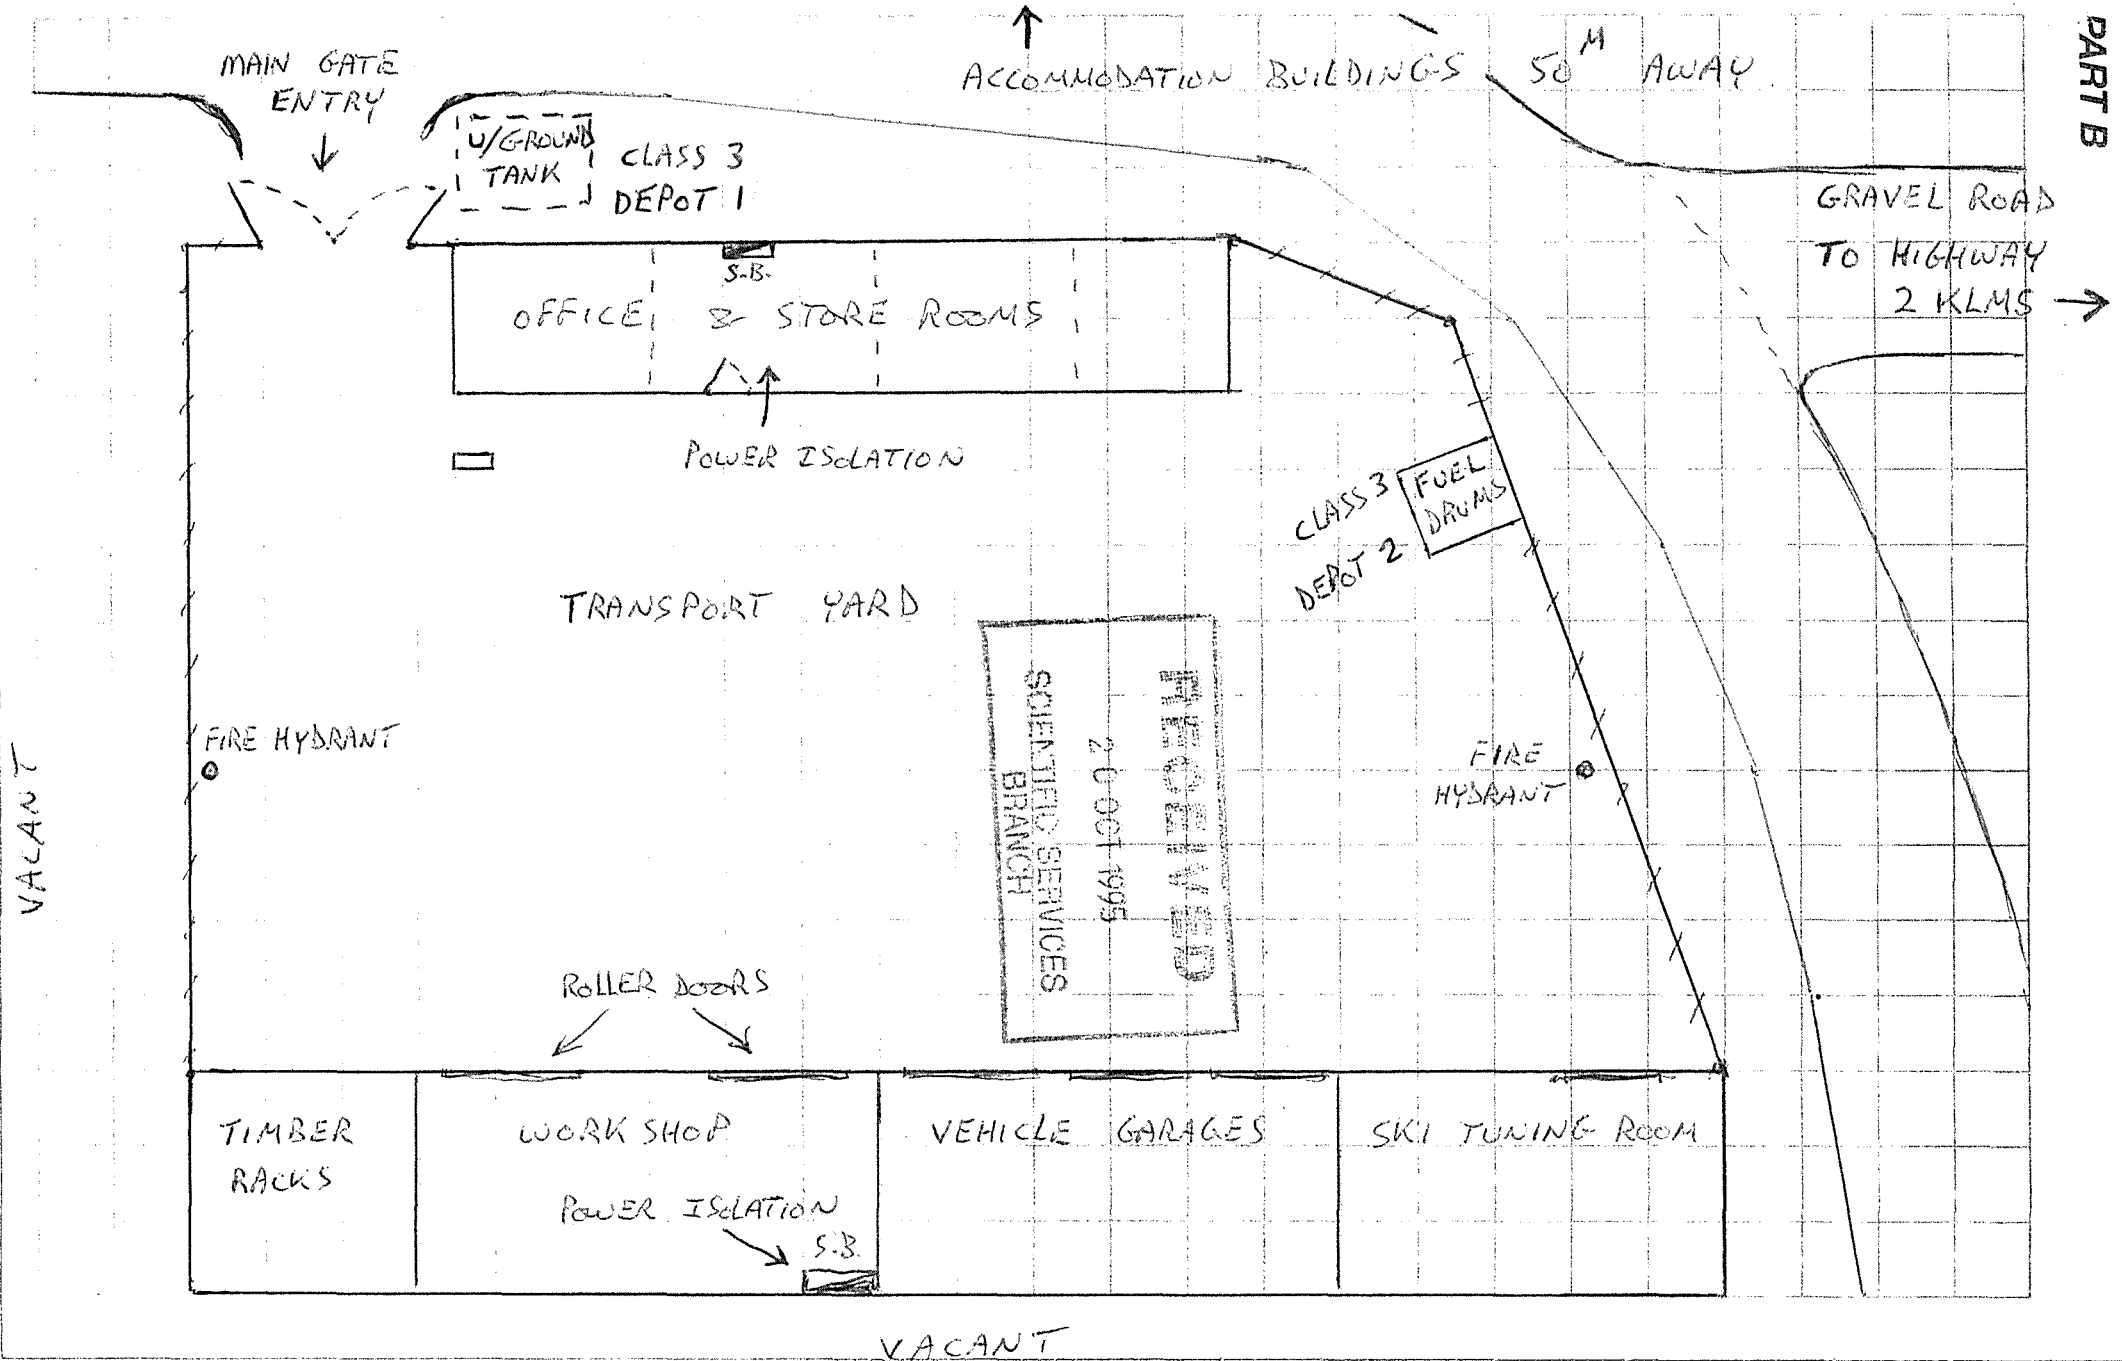 PART B
MAIN GATE
ENTRY
ACCOMMODATION BUILDINGS 50M AWAY
U/GROUND
TANK
CLASS 3
DEPOT 1
GRAVEL ROAD
TO HIGHWAY
2 KLMS
S.B.
OFFICE & STORE ROOMS
POWER ISOLATION
CLASS 3
DEPOT 2
FUEL
DRUMS
TRANSPORT YARD
RECEIVED
20 OCT 1995
SCIENTIFIC SERVICES
BRANCH
FIRE HYDRANT
FIRE
HYDRANT
VACANT
ROLLER DOORS
TIMBER
RACKS
WORK SHOP
VEHICLE GARAGES
SKI TUNING ROOM
POWER ISOLATION
S.B.
VACANT